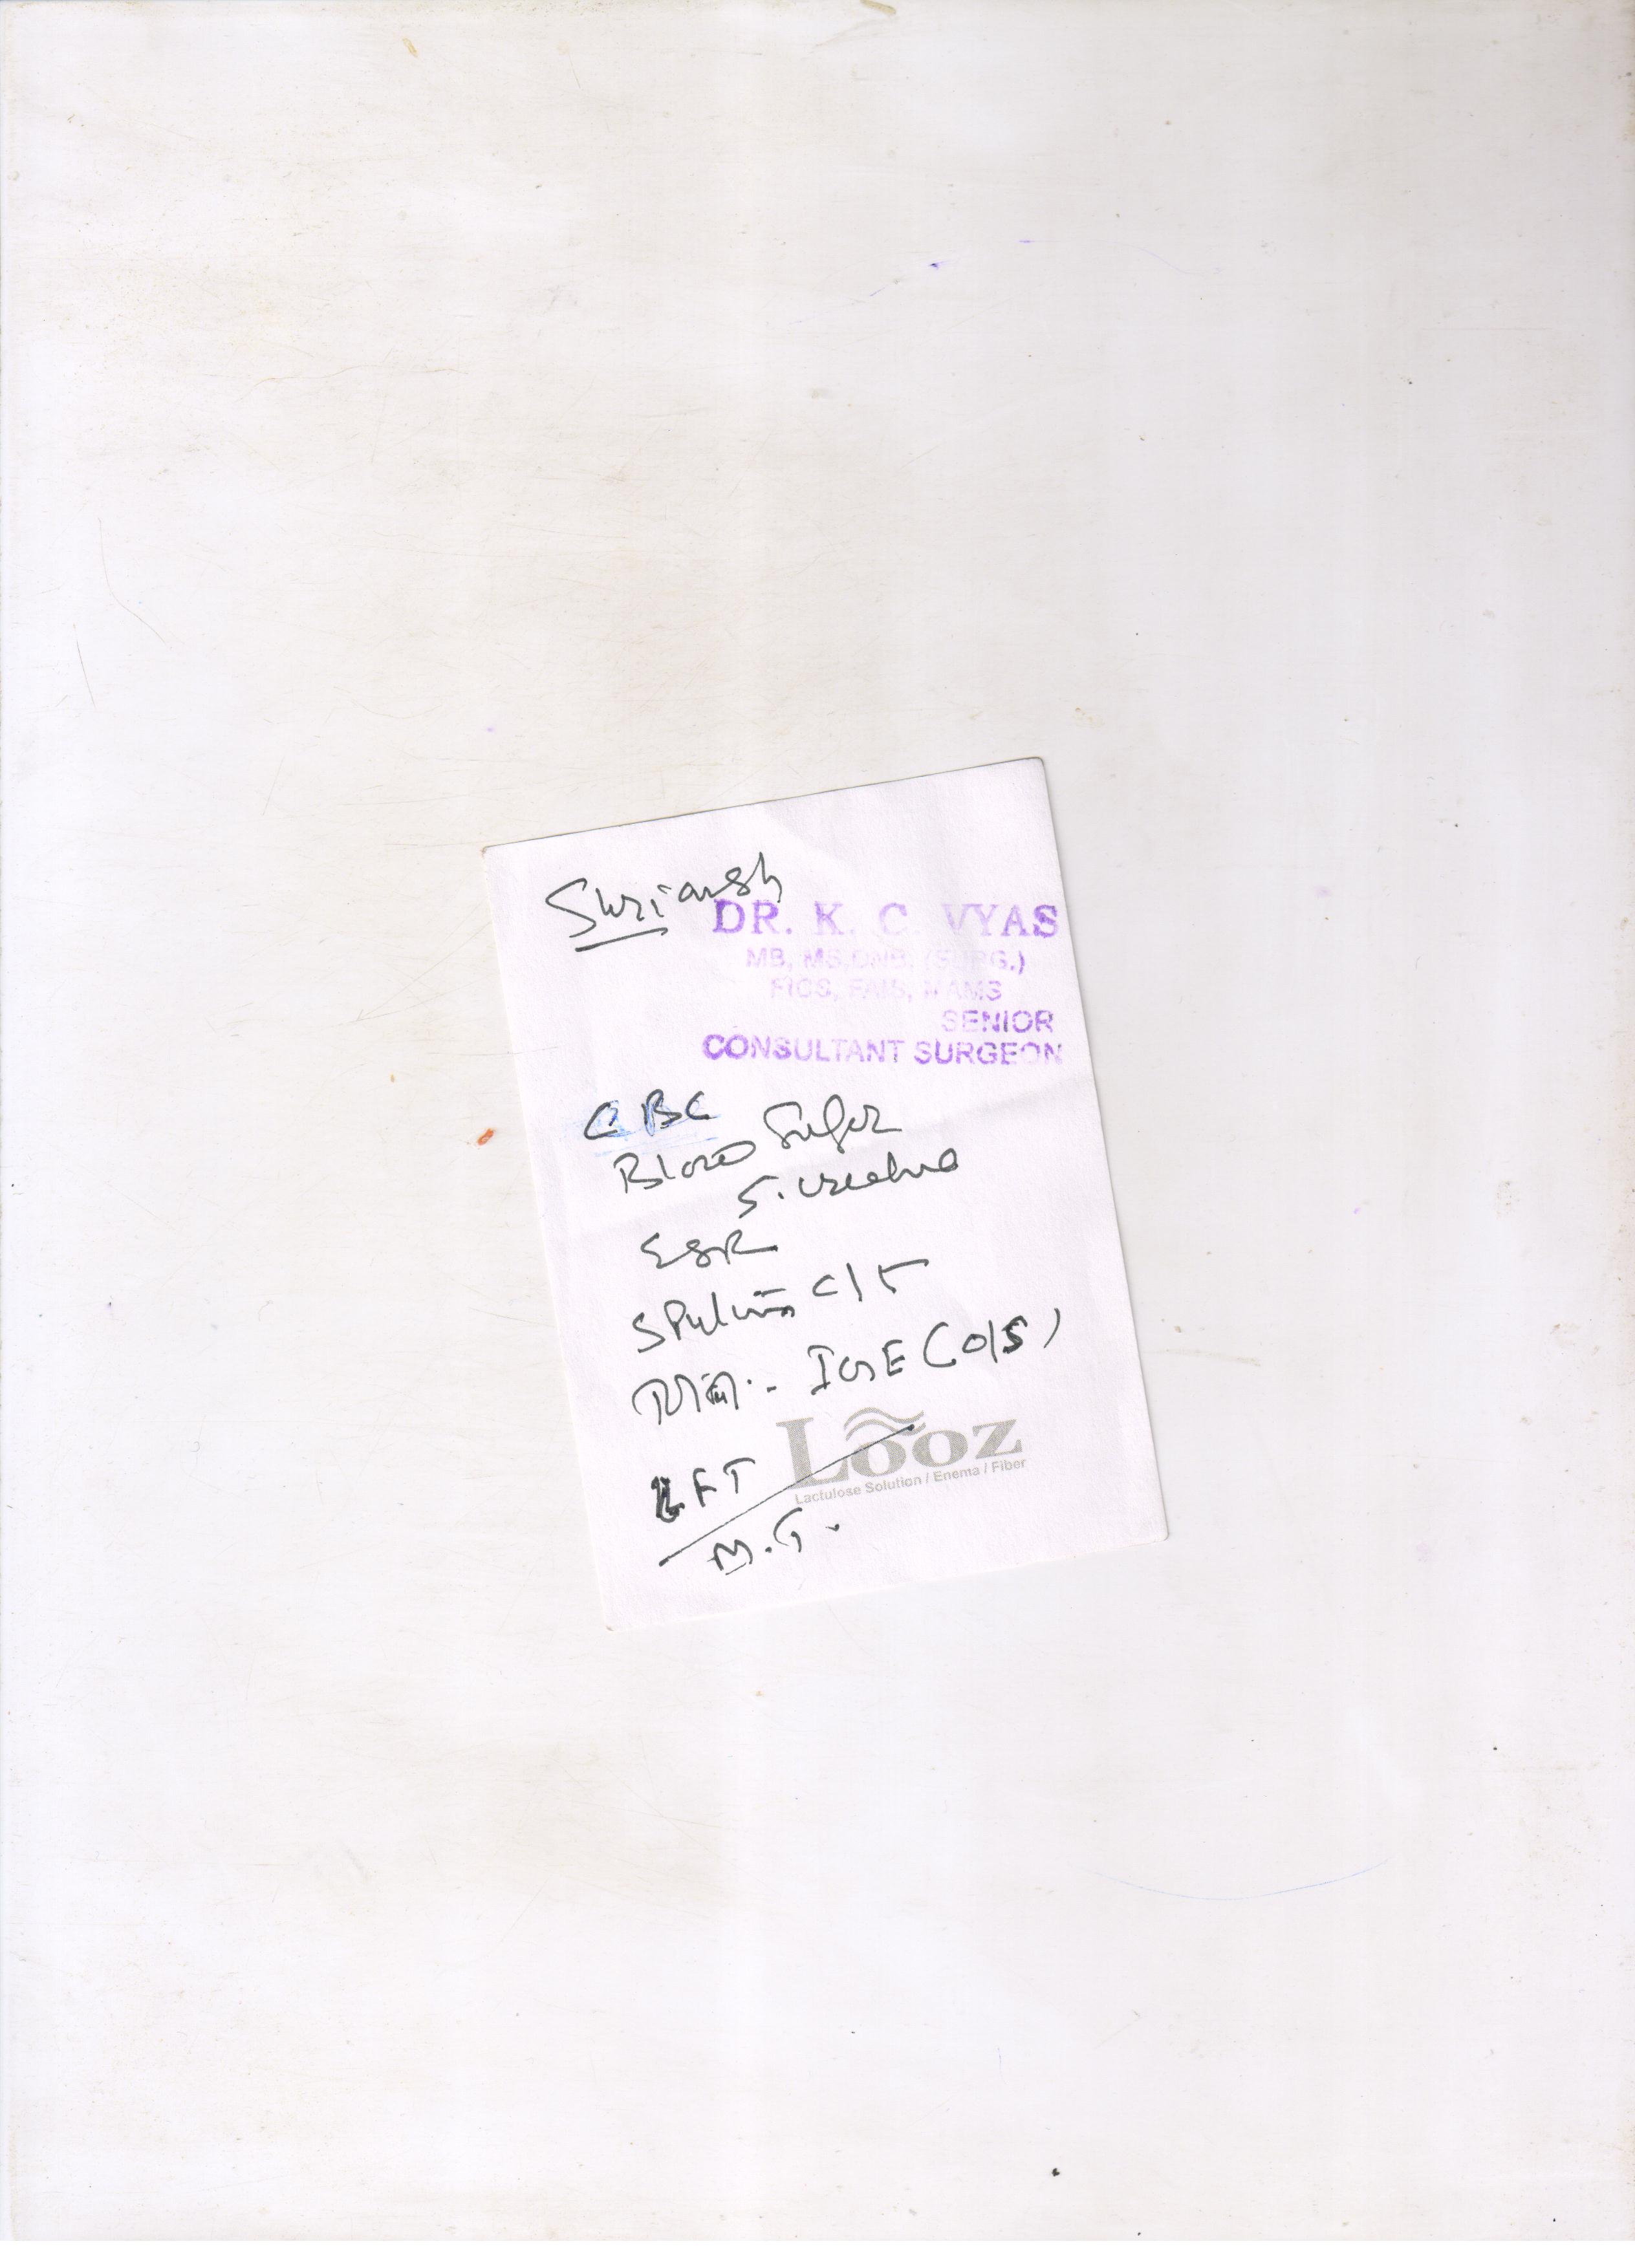 Shriansh
DR. K. C. VYAS
MB, MS, DNB, (SURG.)
FICS, FAIS, MAMS
SENIOR
CONSULTANT SURGEON
CBC
Blood Sugar
S. creatine
ESR
Sputum C/S
IgE (O/S)
LFT
M.T.
Looz
Lactulose Solution / Enema / Fiber